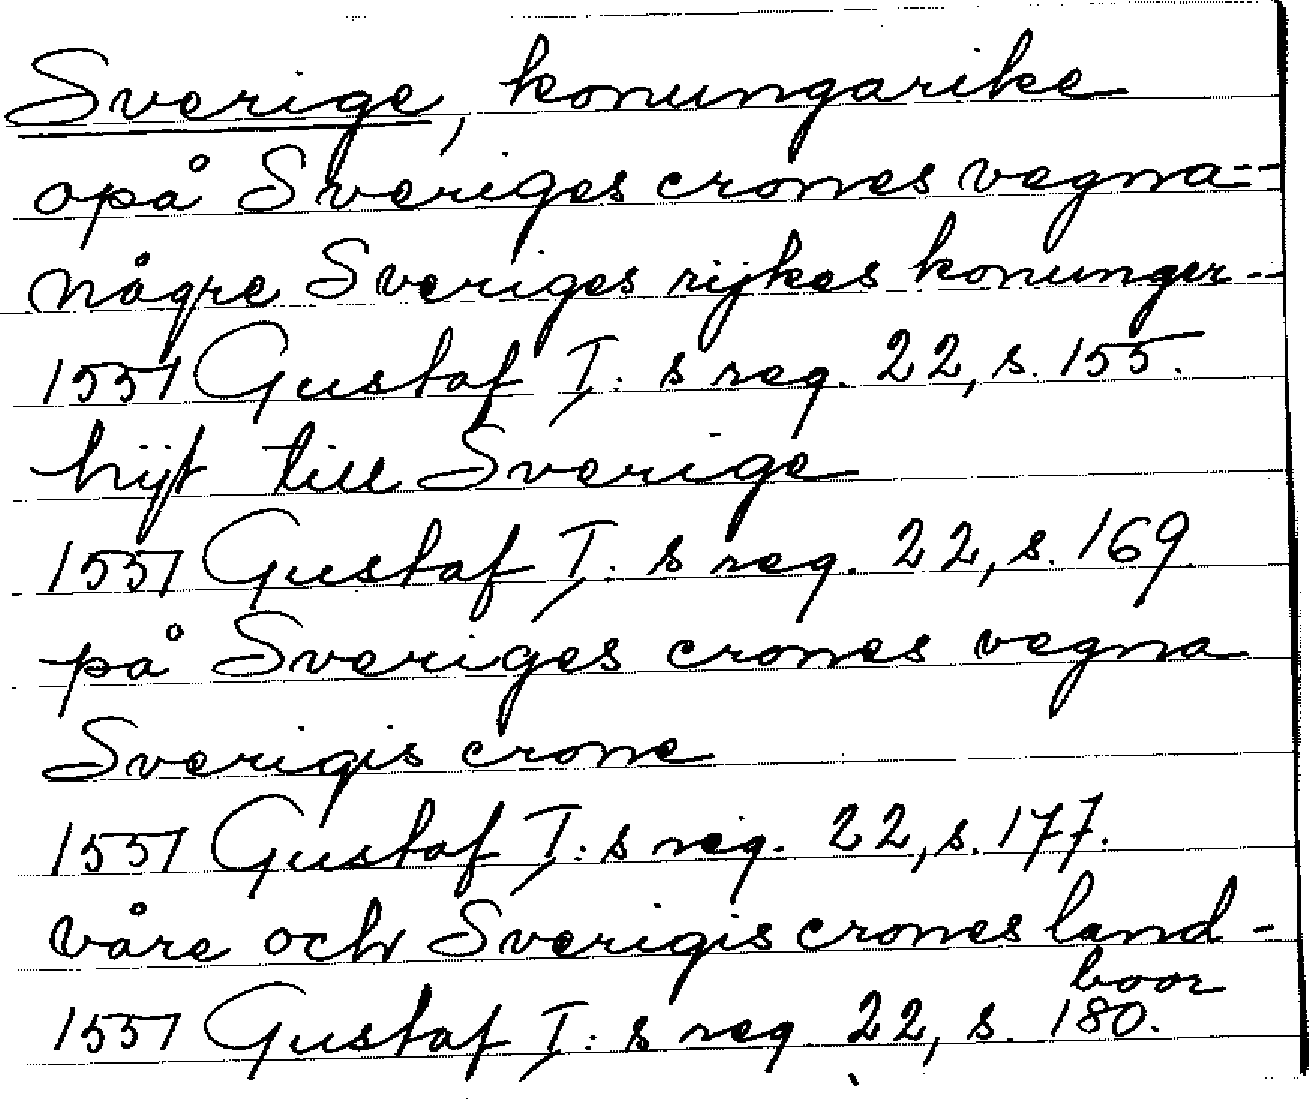 Sverige, konungarike
opå Sveriges crones vegna--
någre Sveriges rijkes konunger--
1551 Gustaf I: s reg. 22, s. 155.
hijt till Sverige
1551 Gustaf I: s reg. 22, s. 169
på Sveriges crones vegna
Sverigis crone
1551 Gustaf I: s reg. 22, s. 177.
våre och Sverigis crones land-
boor
1551 Gustaf I: s reg 22, s. 180.